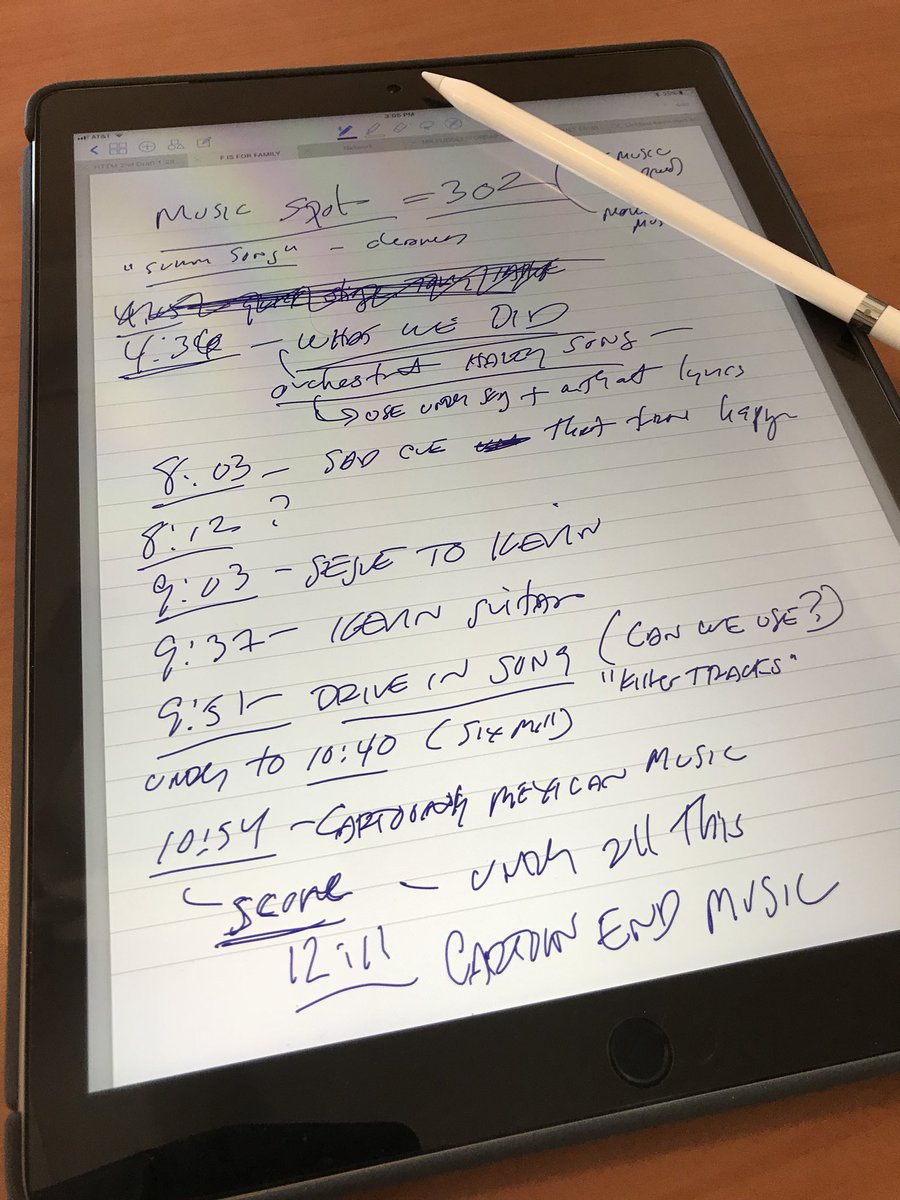 AT&T
3:05 PM
F IS FOR FAMILY
Network
Music Spot = 302 (
MUSIC
Song" -
4:34 - WHAT WE DID
Orchestral SONG -
USE under + without lyrics
8:03 - SAD CUE that turns happy
8:12 ?
9:03 - SEGUE TO KEVIN
9:37 - KEVIN guitar
9:51 - DRIVE IN SONG (CAN WE USE?)
"Killer TRACKS"
under to 10:40
10:54 - CARTOONY MEXICAN MUSIC
SCORE - under all This
12:11 CARTOON END MUSIC